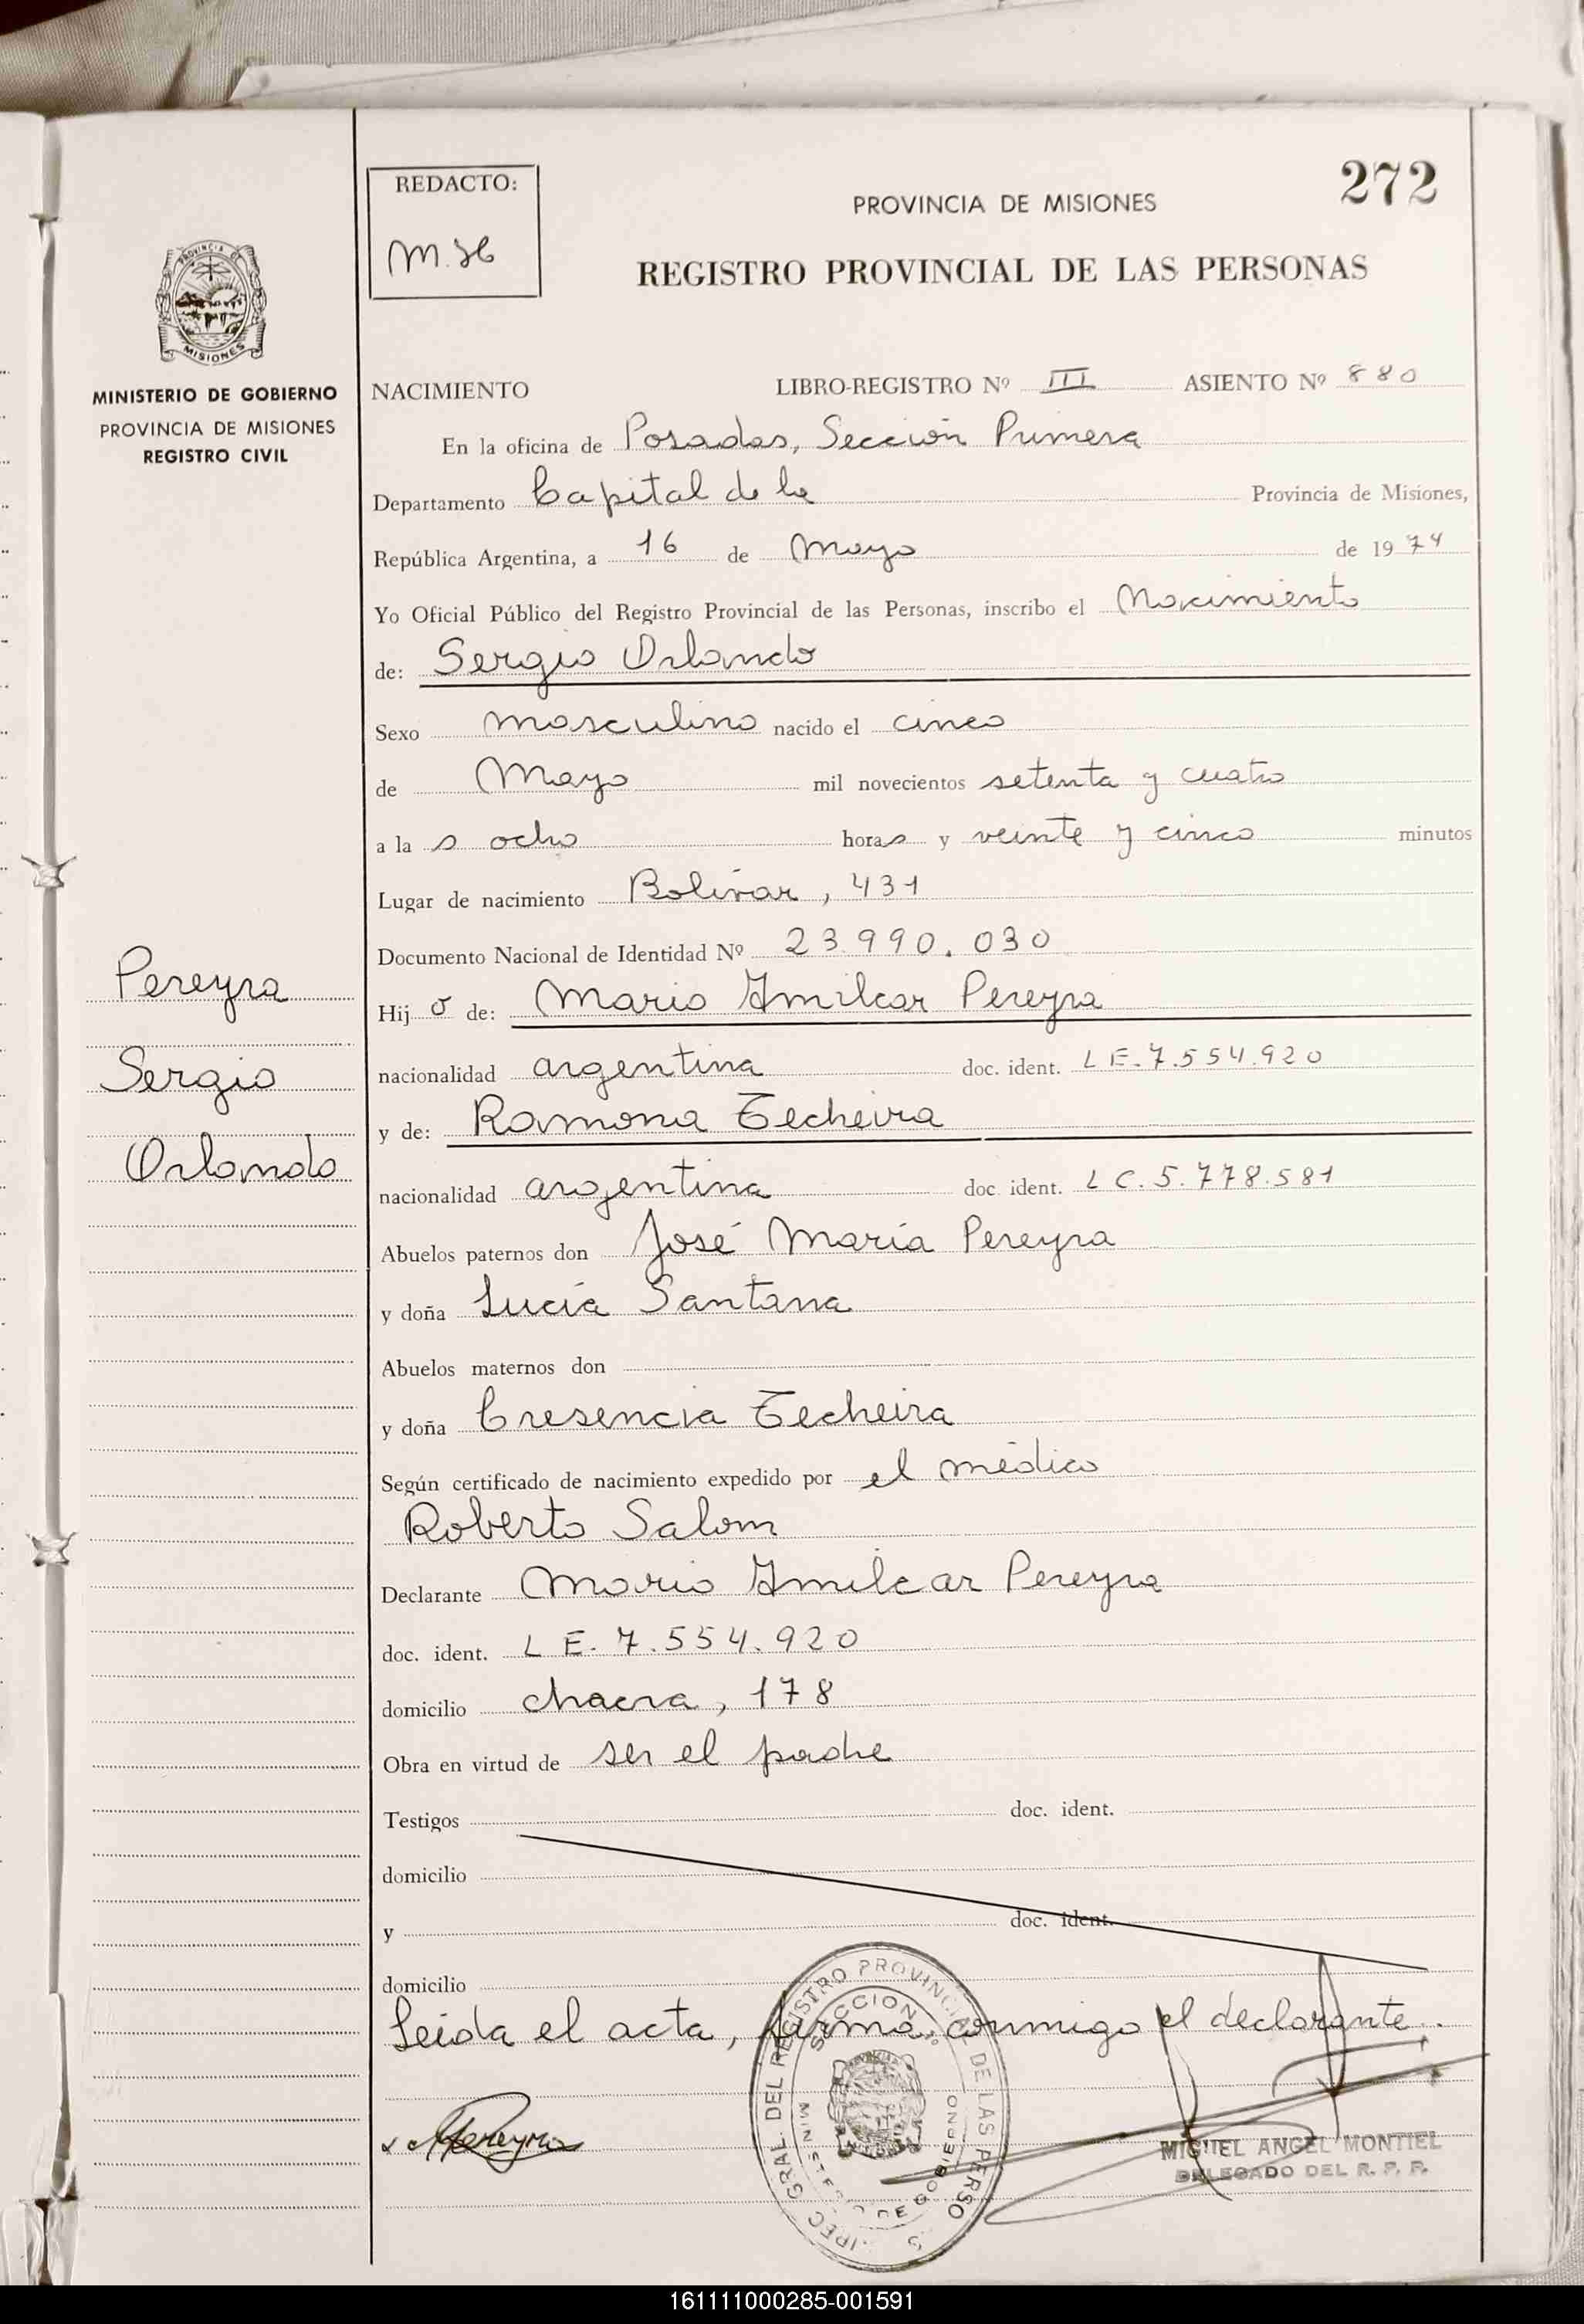 REDACTO:
PROVINCIA DE MISIONES
272
REGISTRO PROVINCIAL DE LAS PERSONAS
PROVINCIA DE
MISIONES
MINISTERIO DE GOBIERNO
PROVINCIA DE MISIONES
REGISTRO CIVIL
NACIMIENTO LIBRO-REGISTRO Nº III ASIENTO Nº 880
En la oficina de Posadas, Sección Primera
Departamento Capital de la Provincia de Misiones,
República Argentina, a 16 de Mayo de 1974
Yo Oficial Público del Registro Provincial de las Personas, inscribo el Nacimiento
de: Sergio Orlando
Sexo masculino nacido el cinco
de Mayo mil novecientos setenta y cuatro
a la s ocho horas y veinte y cinco minutos
Lugar de nacimiento Bolívar, 431
Documento Nacional de Identidad Nº 23.990.030
Pereyra
Sergio
Orlando
Hij o de: Mario Amilcar Pereyra
nacionalidad argentina doc. ident. LE.7.554.920
y de: Ramona Techeira
nacionalidad argentina doc. ident. LC.5.778.581
Abuelos paternos don José María Pereyra
y doña Lucía Santana
Abuelos maternos don
y doña Cresencia Techeira
Según certificado de nacimiento expedido por el médico
Roberto Salom
Declarante Mario Amilcar Pereyra
doc. ident. LE.7.554.920
domicilio chacra, 178
Obra en virtud de ser el padre
Testigos doc. ident.
domicilio
y doc. ident.
domicilio
Leida el acta, firma conmigo el declarante.
GRAL. DEL REGISTRO PROVINCIAL DE LAS PERSO
SECCION
MINISTERIO DE GOBIERNO
Pereyra
MIGUEL ANGEL MONTIEL
DELEGADO DEL R. P. P.
161111000285-001591